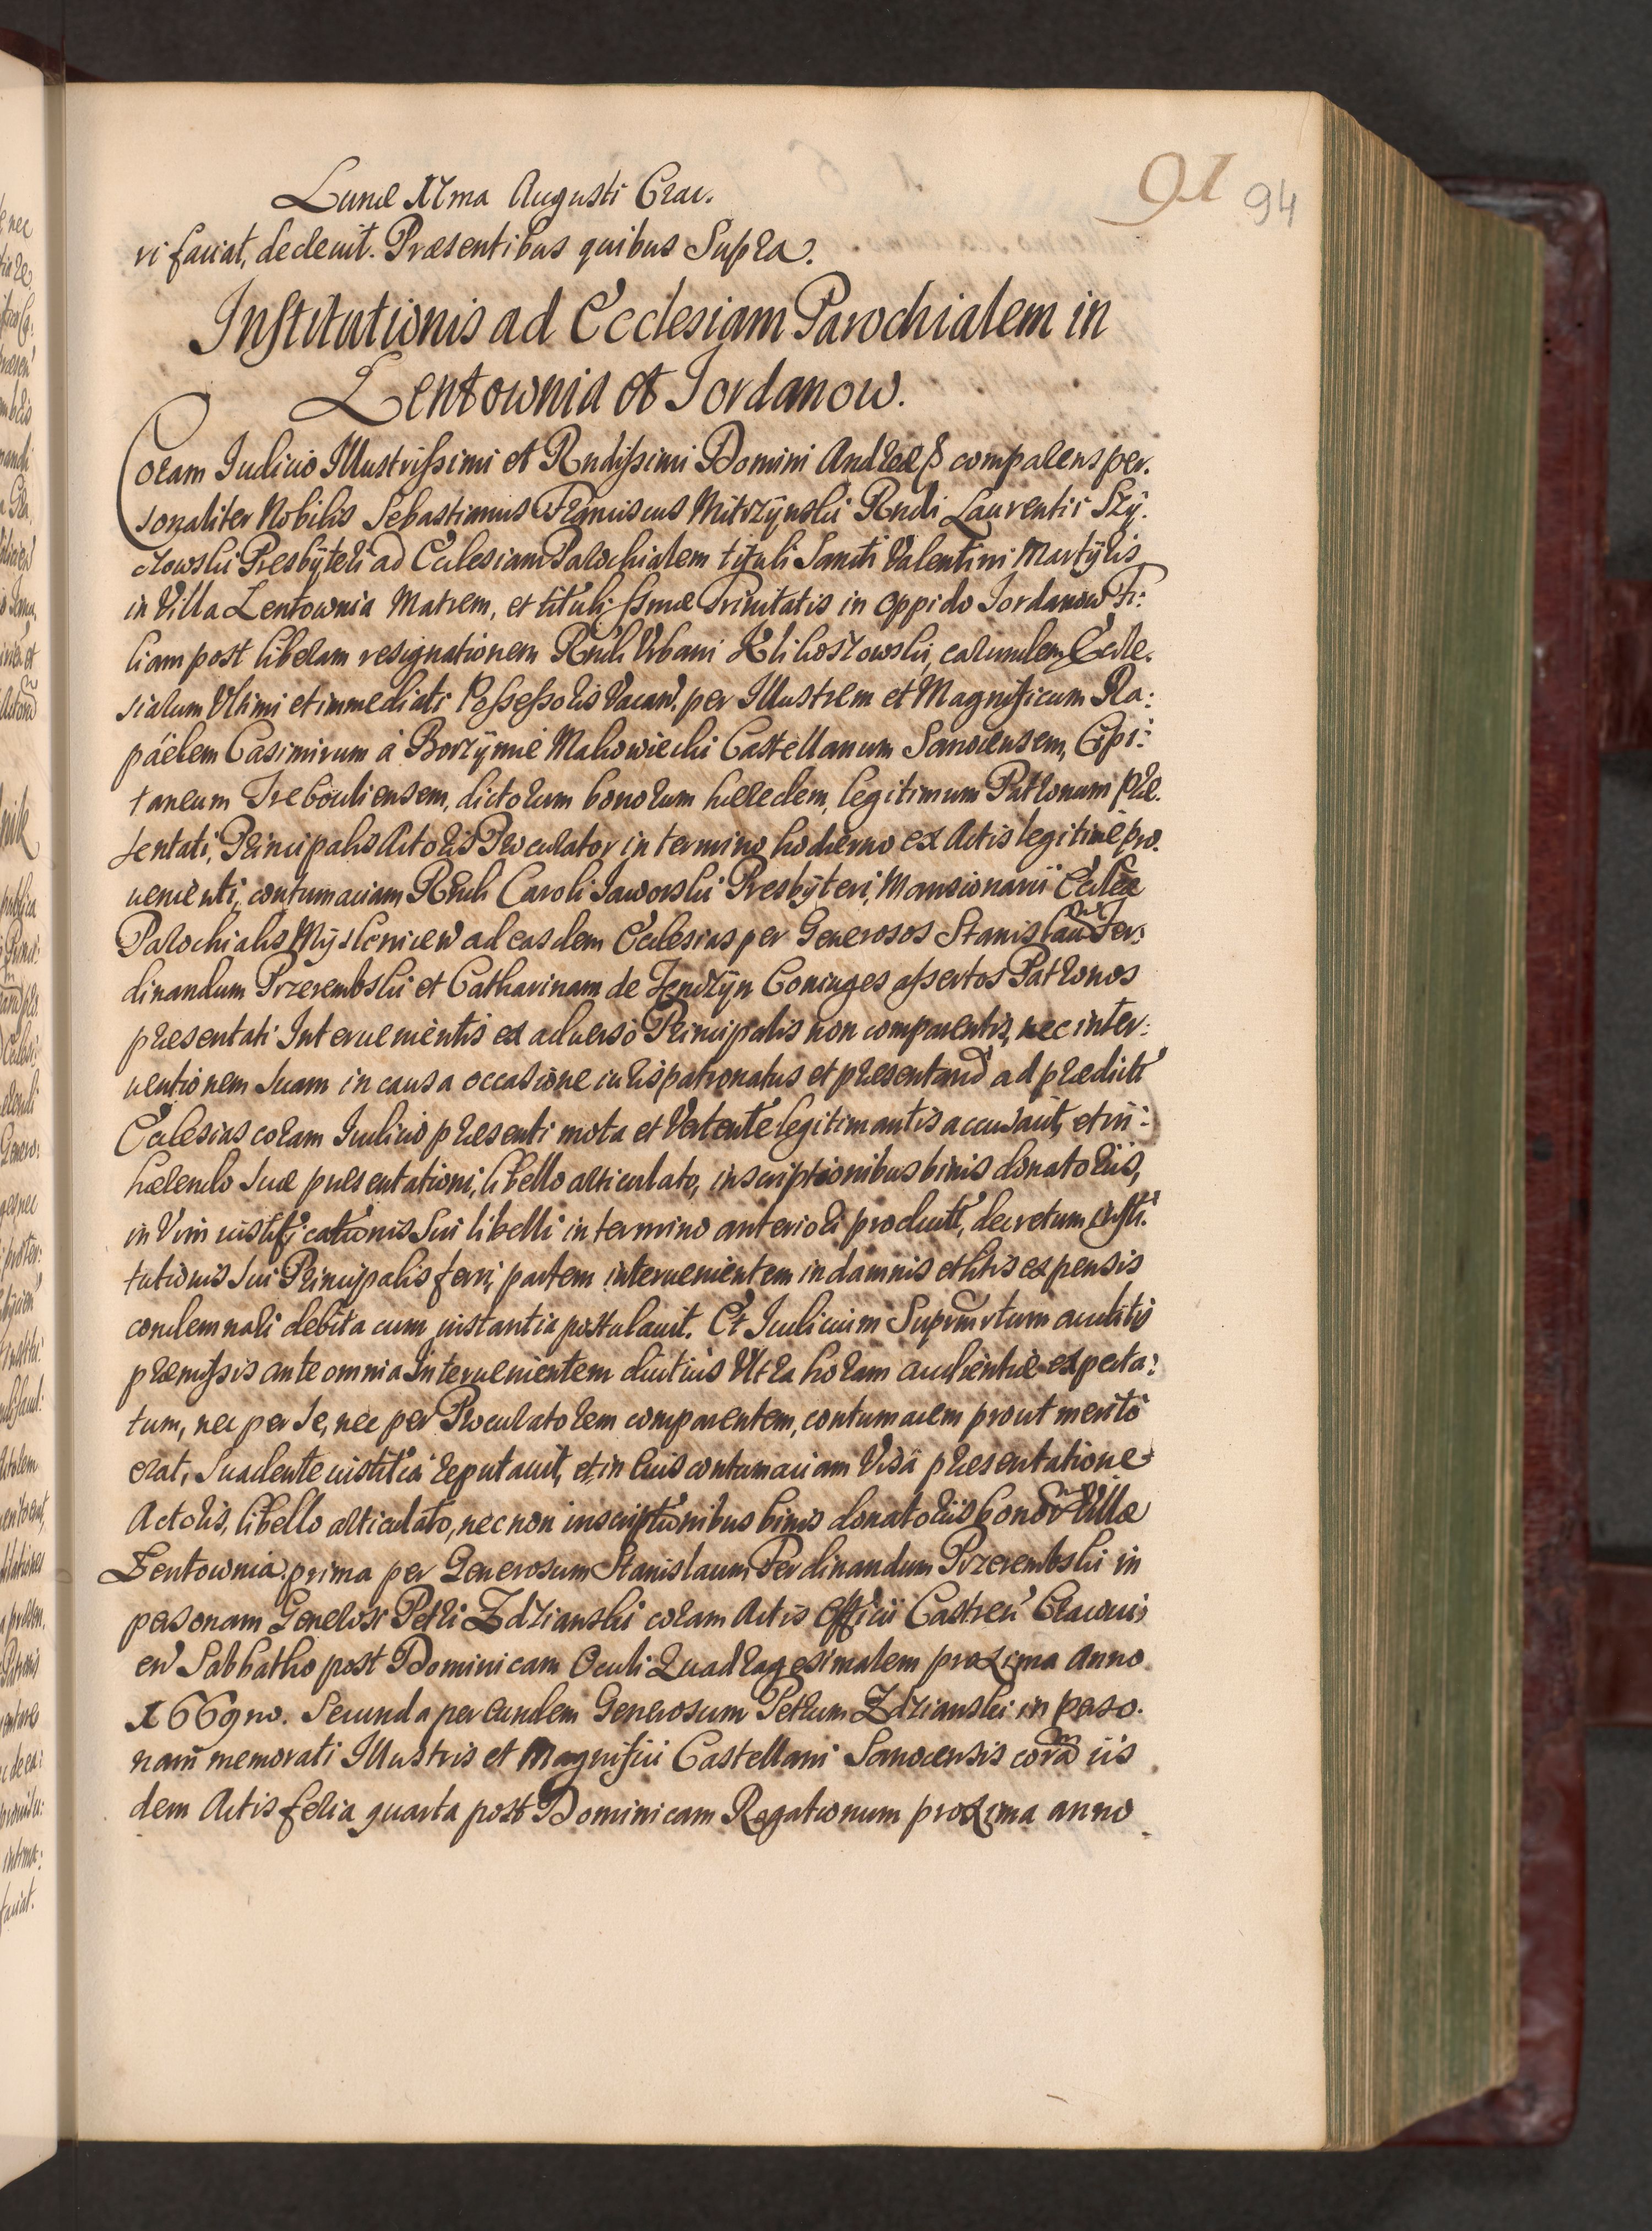 Lunæ XIma Augusti Crac.
91 94
ri faciat, decrevit. Præsentibus quibus Supra.
Institutionis ad Ecclesiam Parochialem in
Lentownia et Iordanow.
Coram Iudicio Illustrissimi et Rndissimi Domini Andreæ ß comparens per.
sonaliter Nobilis Sebastianus Franciscus Mitrzÿnski Rndi Laurentii Szÿ.
Presbÿteri ad Ecclesiam Parochialem tituli Sancti Valentini Martÿris
in Villa Lentownia Matrem, et tituli ssmæ Trinitatis in oppido Iordanow Fi:
liam post liberam resignationem Rndi Urbani earumdem Eccle.
siarum Ultimi et immediati Possessoris Vacan. per Illustrem et Magnificum Ra:
phaelem Casimirum à Borzÿmie Makowiecki Castellanum Sanocensem, Capi:
taneum Trebouliensem, dictorum bonorum hæredem, legitimum Patronum præ.
sentati, Principalis Actoris Procurator in termino hodierno ex Actis legitimè pro.
uenienti, contumaciam Rndi Caroli Iaworski Presbÿteri, Mansionarii Ecclæ
Parochialis Mÿslenicen ad easdem Ecclesias per Generosos Stanislaũ Fer:
dinandum Przerembski et Catharinam de Tenczÿn Coniuges assertos Patronos
præsentati Interuenientis ex aduerso Principalis non comparentis, nec inter:
uentionem suam in causa occasione iurispatronatus et præsentand ad prædict
Ecclesias coram Iudicio præsenti mota et Vertente legitimantis accusauit, et in:
hærendo suæ præsentationi, libello articulato, inscriptionibus binis donatoriis,
in Vim iustificationis sui libelli in termino anteriori product, decretum insti:
tutionis sui Principalis ferri, partem interuenientem in damnis et litis expensis
condemnari debita cum instantia postulauit. Et Iudicium Suprmrtum auditis
præmissis ante omnia Interuenientem diutius Ultra horam audientiæ expecta:
tum, nec per se, nec per Procuratorem comparentem, contumacem prout meritò
erat, suadente iustitia reputauit, et in eius contumaciam Visa præsentatione
Actoris, libello articulato, nec non inscriptionibus binis donatoriis bonor Villæ
Lentownia prima per Generosum Stanislaum Ferdinandum Przerembski in
personam Generosi Petri Zdzianski coram Actis Officii Castren Cracoui:
en Sabbatho post Dominicam Oculi Quadragesimalem proxima Anno
1669no. Secunda per eundem Generosum Petrum Zdzianski in perso.
nam memorati Illustris et Magnifici Castellani Sanocensis corã iis
dem Actis feria quarta post Dominicam Rogationum proxima anno